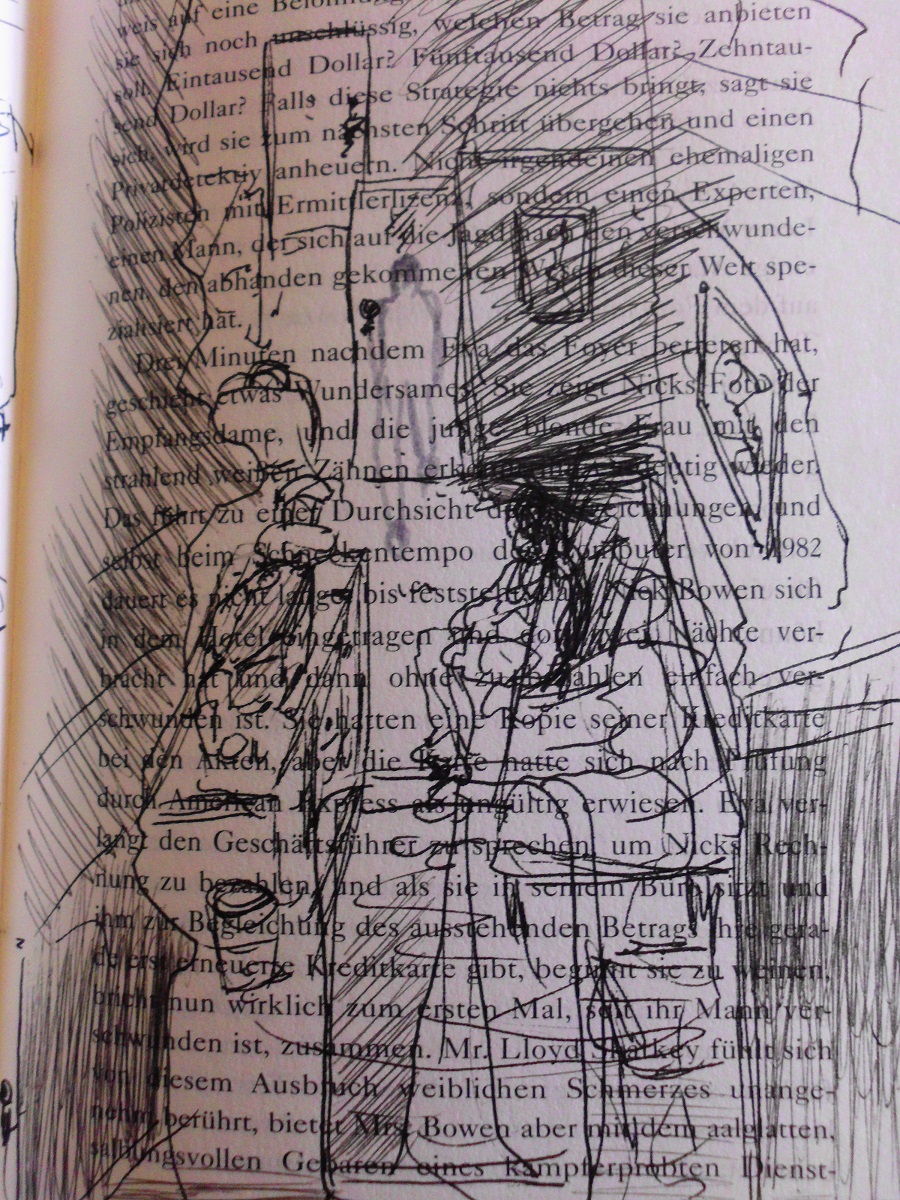 weis auf eine
sie sich noch unschlüssig, welchen Betrag sie anbieten
soll. Eintausend Dollar? Fünftausend Dollar? Zehntau-
send Dollar? Falls diese Strategie nichts bringt, sagt sie
sich, wird sie zum nächsten Schritt übergehen und einen
Privatdetektiv anheuern. Nicht irgendeinen ehemaligen
Polizisten mit Ermittlerlizenz, sondern einen Experten,
einen Mann, der sich auf die Jagd nach den verschwunde-
nen, den abhanden gekommenen Wesen dieser Welt spe-
zialisiert hat.
Drei Minuten nachdem Eva das Foyer betreten hat,
geschieht etwas Wundersames. Sie zeigt Nicks Foto der
Empfangsdame, und die junge blonde Frau mit den
strahlend weißen Zähnen erkennt ihn wieder.
Das führt zu einer Durchsicht der und
selbst beim Schneckentempo des Computer von 1982
dauert es nicht lange, bis feststeht, dass Nick Bowen sich
in dem Hotel eingetragen und dort zwei Nächte ver-
bracht hat und dann ohne zu bezahlen einfach ver-
schwunden ist. Sie hatten eine Kopie seiner Kreditkarte
bei den Akten, aber die Karte hatte sich nach Prüfung
durch American Express als ungültig erwiesen. Eva ver-
langt den Geschäftsführer zu sprechen, um Nicks Rech-
nung zu bezahlen, und als sie in seinem Büro sitzt und
ihm zur Begleichung des ausstehenden Betrags ihre gera-
de erst erneuerte Kreditkarte gibt, beginnt sie zu weinen,
bricht nun wirklich zum ersten Mal, seit ihr Mann ver-
schwunden ist, zusammen. Mr. Lloyd Sharkey fühlt sich
von diesem Ausbruch weiblichen Schmerzes unange-
nehm berührt, bietet Mrs. Bowen aber mit dem aalglatten,
salbungsvollen Gebaren eines kampferprobten Dienst-